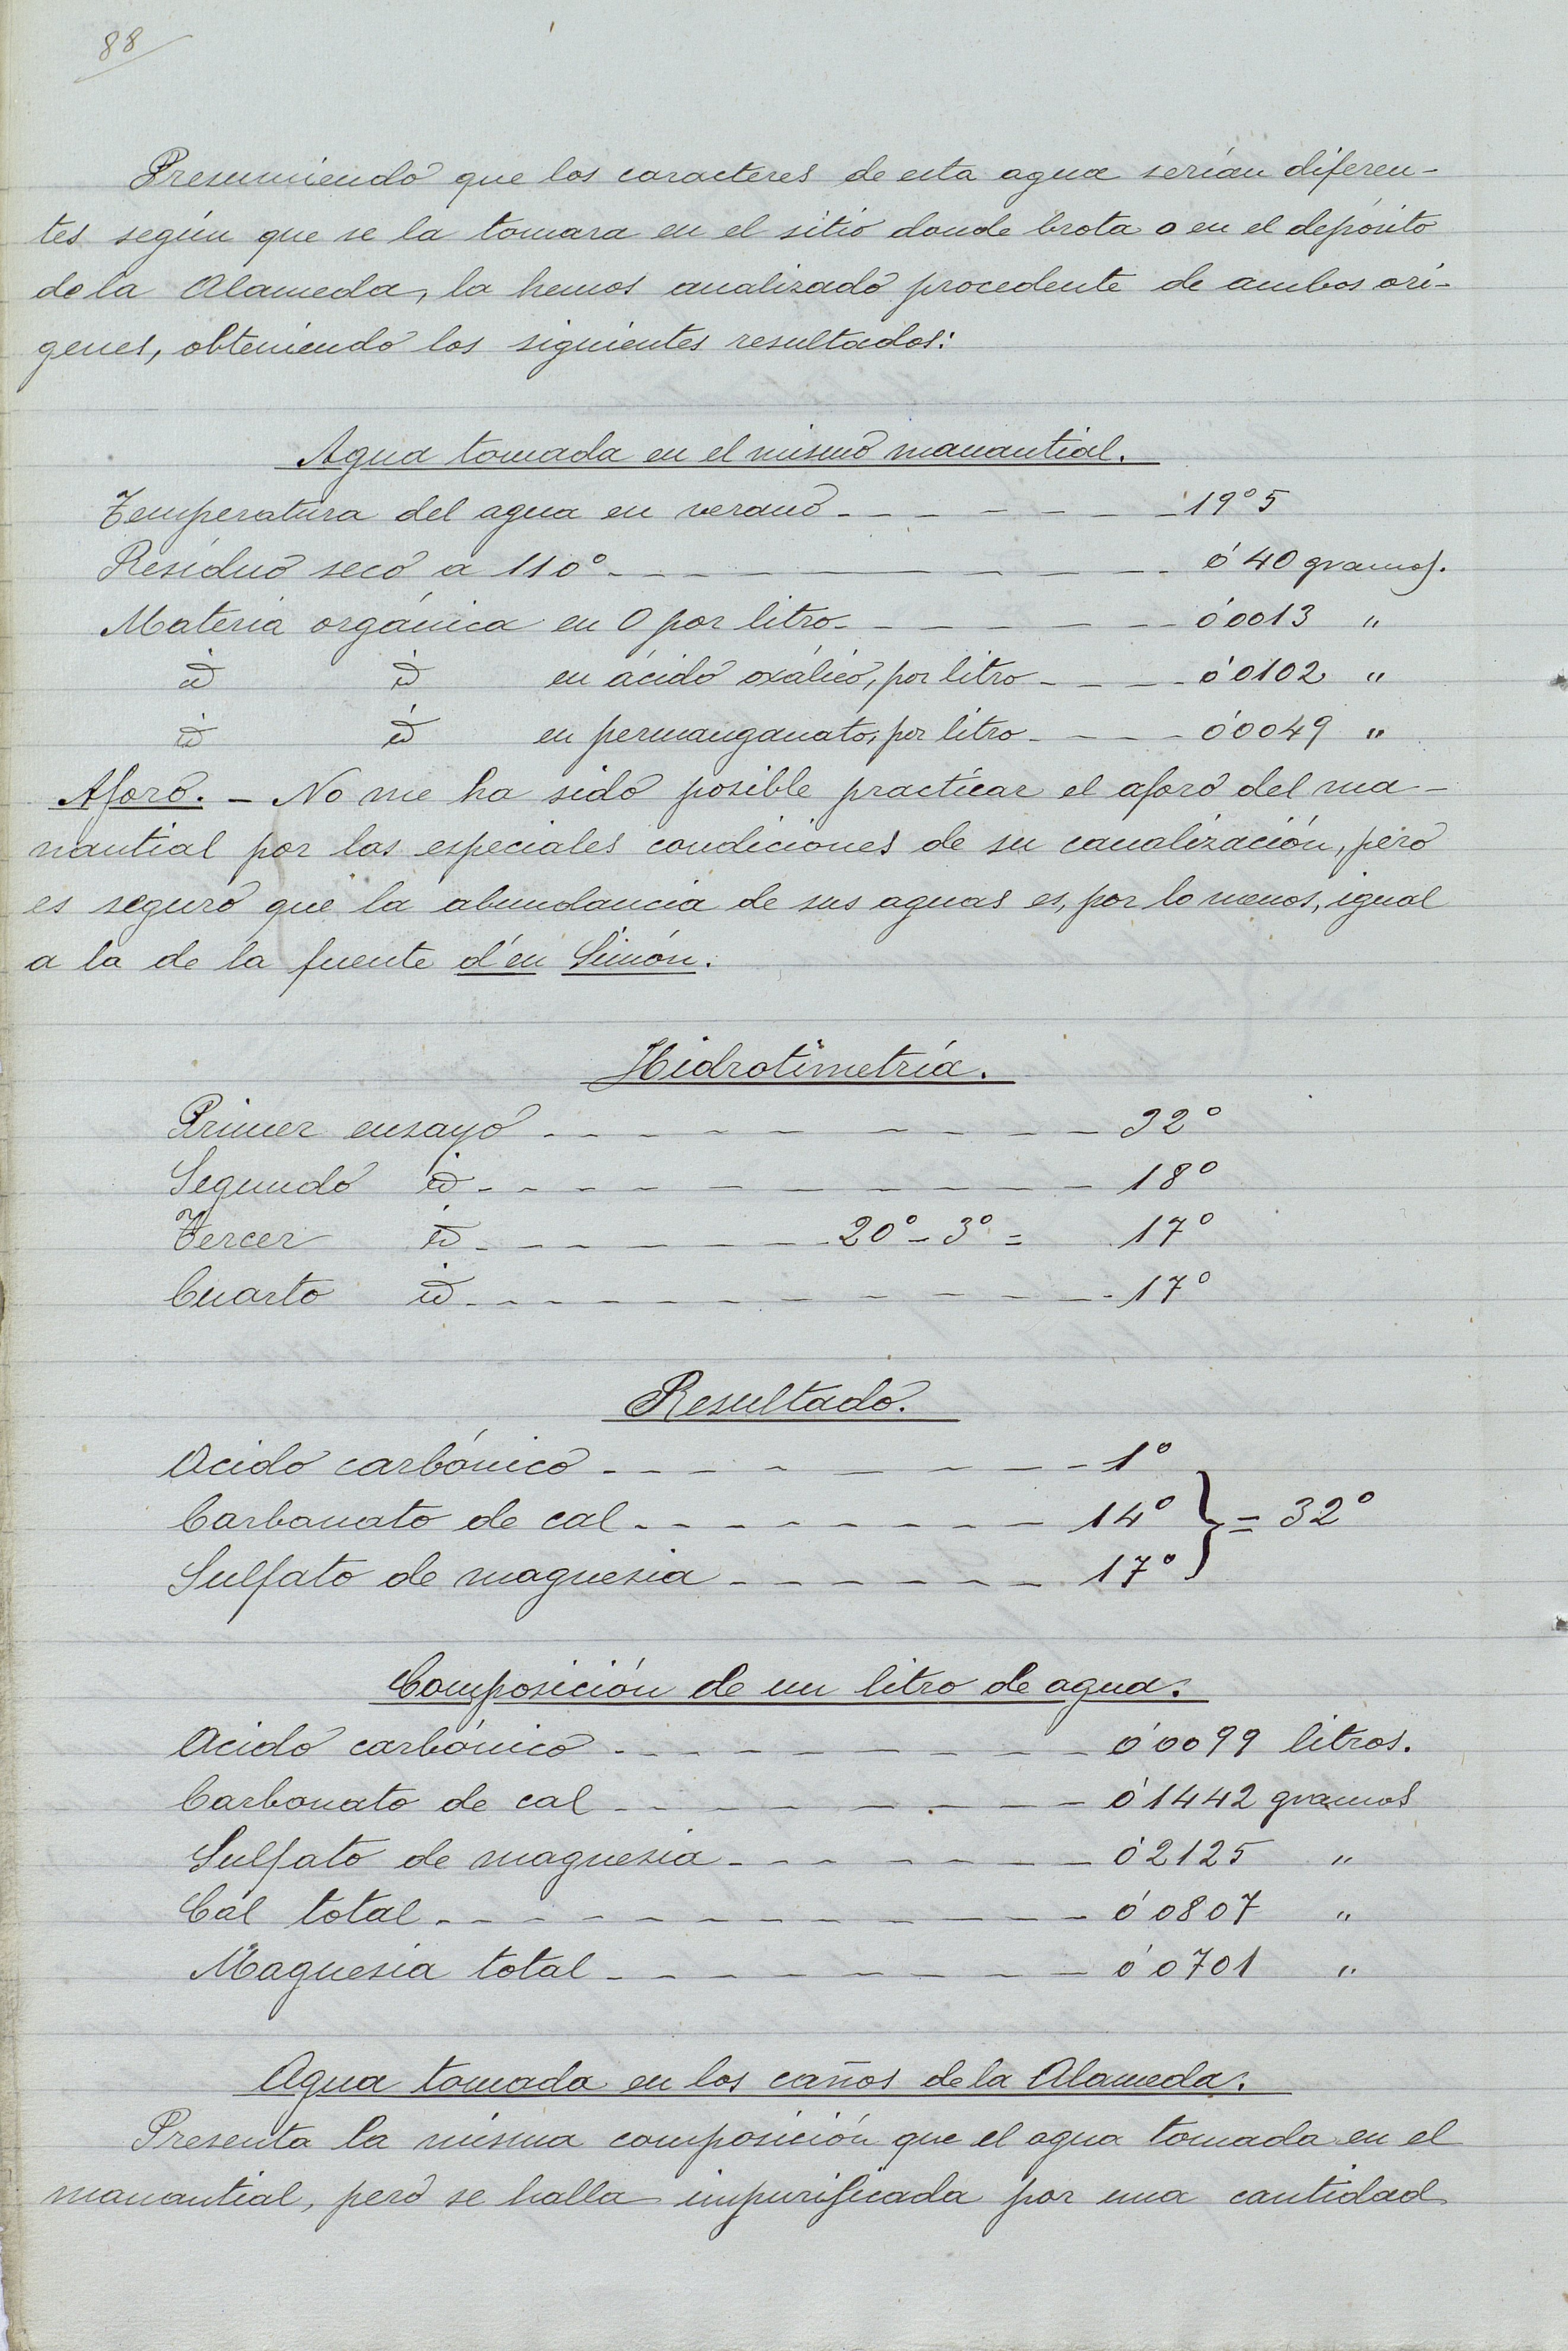 88
Presumiendo que los caracteres de esta agua serían diferen-
tes según que se la tomara en el sitio donde brota o en el depósito
de la Alameda, la hemos analizado procedente de ambos orí-
genes, obteniendo los siguientes resultados:
Agua tomada en el mismo manantial.
Temperatura del agua en verano - - - - - - - 19º5
Resíduo seco a 110º - - - - - - - - - - 0'40 gramos.
Materia orgánica en O por litro - - - - - - - 0'0013 "
id id en ácido oxálico, por litro - - - - 0'0102 "
id id en permanganato, por litro - - - - 0'0049 "
Aforo. - No me ha sido posible practicar el aforo del ma-
nantial por las especiales condiciones de su canalización, pero
es seguro que la abundancia de sus aguas es, por lo menos, igual
a la de la fuente d'en Simón.
Hidrotimetría.
Primer ensayo - - - - - - - - - - - 32º
Segundo id - - - - - - - - - - - - 18º
Tercer id - - - - - - - - 20º - 3º = 17º
Cuarto id - - - - - - - - - - - - - 17º
Resultado.
Acido carbónico - - - - - - - - - 1º
Carbonato de cal - - - - - - - - - 14º } = 32º
Sulfato de magnesia - - - - - - - 17º
Composición de un litro de agua.
Acido carbónico - - - - - - - - - 0'0099 litros.
Carbonato de cal - - - - - - - - - 0'1442 gramos
Sulfato de magnesia - - - - - - - - 0'2125 "
Cal total - - - - - - - - - - - - - 0'0807 "
Magnesia total - - - - - - - - - 0'0701 "
Agua tomada en los caños de la Alameda.
Presenta la misma composición que el agua tomada en el
manantial, pero se halla impurificada por una cantidad